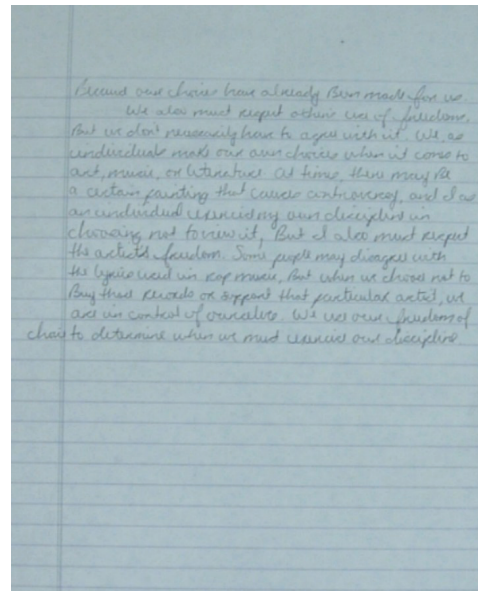 Because our choices have already Been made for us.
We also must respect others use of freedom.
But we don't necessarily have to agree with it. We as
individuals make our own choices when it comes to
art, music, or literature. At times, there may Be
a certain painting that causes controversy, and I as
an individual exercise my own discipline in
choosing not to view it, But I also must respect
the artist's freedom. Some people may disagree with
the lyrics used in rap music, But when we choose not to
Buy those records or support that particular artist, we
are in control of ourselves. We use our freedom of
choice to determine when we must exercise our discipline